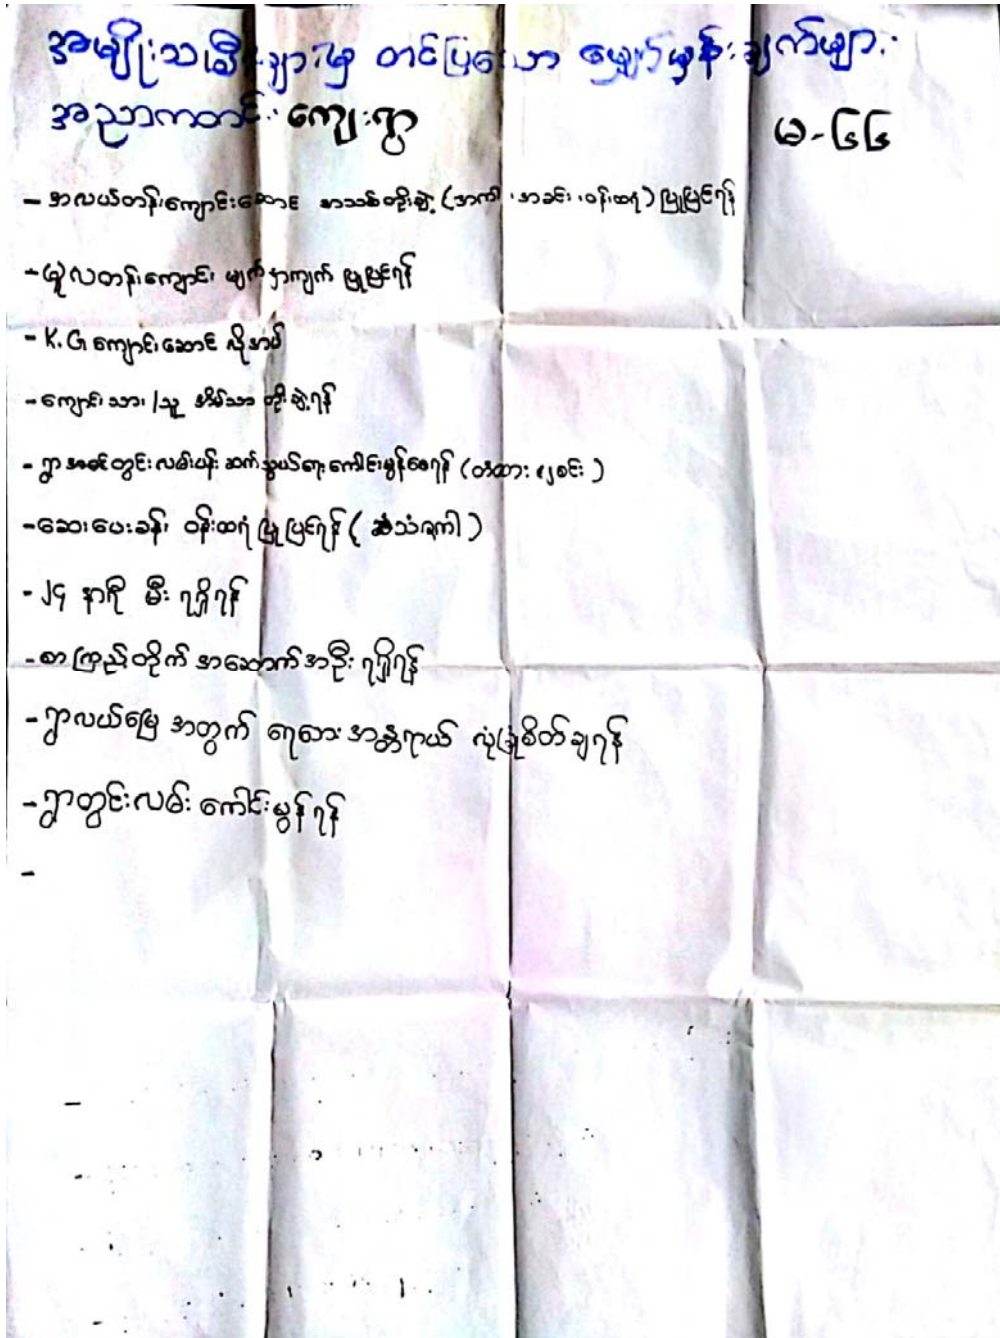 အမျိုးသမီးများမှ တင်ပြသော မျှော်မှန်းချက်များ
အညာကတင်း ကျေးရွာ မ-၆၆
- အလယ်တန်းကျောင်းဆောင် အသစ်တိုးချဲ့ (အကာ၊ အခင်း၊ ဝန်းထရံ) ပြုပြင်ရန်
- မူလတန်းကျောင်း မျက်နှာကျက် ပြုပြင်ရန်
- K.G ကျောင်းဆောင် လိုအပ်
- ကျောင်းသား/သူ အိမ်သာ တိုးချဲ့ရန်
- ရွာအဝင်တွင်းလမ်းပန်းဆက်သွယ်ရေးကောင်းမွန်စေရန် (တံထား ၊ စင်း)
- ဆေးပေးခန်း ဝန်းထရံ ပြုပြင်ရန် (ဆံသံရကါ)
- ၂၄ နာရီ မီး ရရှိရန်
- စာကြည့်တိုက် အဆောက်အဦး ရရှိရန်
- ရွာလယ်မြေ အတွက် ရေဘေးအန္တရာယ် လုံခြုံစိတ်ချရန်
- ရွာတွင်းလမ်း ကောင်းမွန်ရန်
-